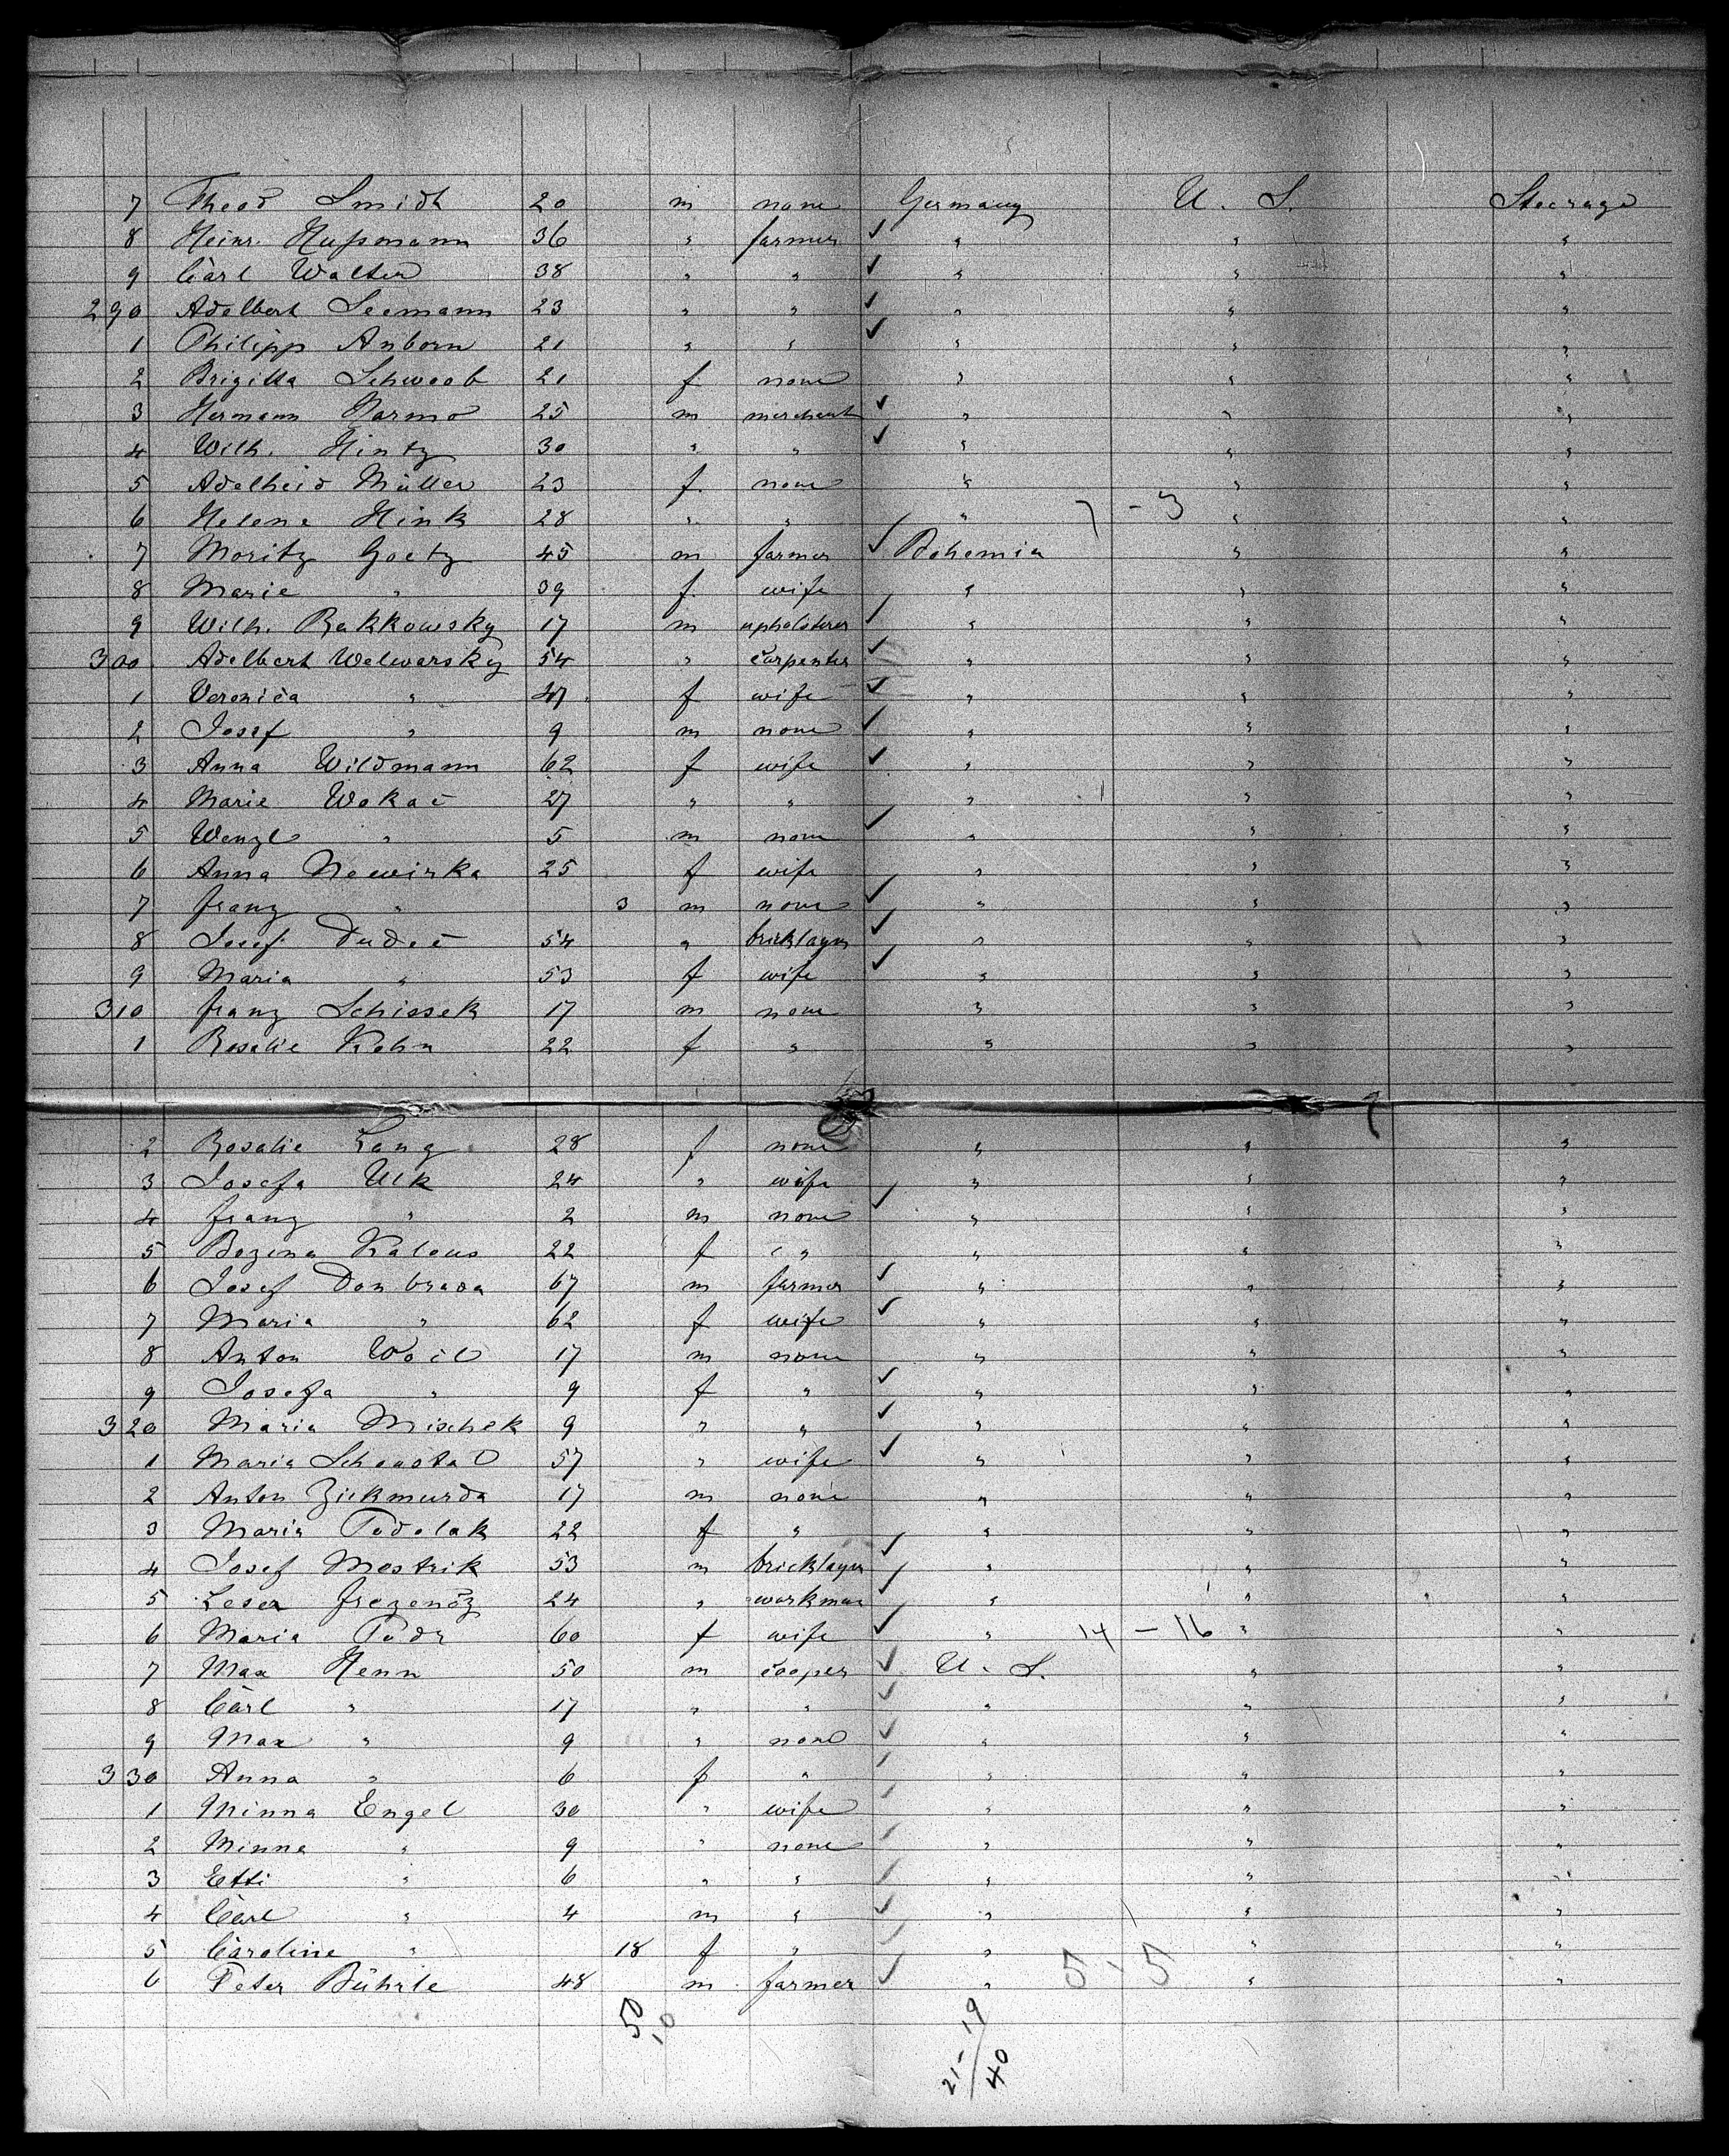 7 Theod Smidt 20 m none Germany U. S. Steerage
8 Heinr. Hußmann 36 " farmer ✓ " " "
9 Carl Walter 38 " " ✓ " " "
290 Adelbert Seemann 23 " " ✓ " " "
1 Philipp Anborn 21 " " ✓ " " "
2 Brigitta Schwoob 21 f none " " "
3 Hermann Harms 25 m merchant ✓ " " "
4 Wilh. Hintz 30 " " ✓ " " "
5 Adelheid Müller 23 f. none " " "
6 Helene Hink 28 " " " 7 - 3 " "
7 Moritz Goetz 45 m farmer ✓ Bohemia " "
8 Marie " 39 f. wife " " "
9 Wilh. Rakkowsky 17 m upholsterer ✓ " " "
300 Adelbert Welwarsky 54 " carpenter ✓ " " "
1 Veronica " 47 f wife ✓ " " "
2 Josef " 9 m none ✓ " " "
3 Anna Wildmann 62 f wife ✓ " " "
4 Marie Wokac 27 " " " " "
5 Wenzl " 5 m none ✓ " " "
6 Anna Newirka 25 f wife " " "
7 Franz " 3 m none ✓ " " "
8 Josef Dudec 54 " bricklayer ✓ " " "
9 Maria " 53 f wife ✓ " " "
310 Franz Schissek 17 m none " " "
1 Rosalie Kohn 22 f " " " "
2 Rosalie Lang 28 f none " " "
3 Josefa Ulk 24 " wife " " "
4 Franz " 2 m none ✓ " " "
5 Bozena Kalous 22 f " " " "
6 Josef Donbrava 67 m farmer ✓ " " "
7 Maria " 62 f wife ✓ " " "
8 Anton 17 m none " " "
9 Josefa " 9 f " ✓ " " "
320 Maria Mischek 9 " " ✓ " " "
1 Maria Schoustal 57 " wife ✓ " " "
2 Anton Zickmunda 17 m none " " "
3 Maria Podolak 22 f " " " "
4 Josef Mestrik 53 m bricklayer ✓ " " "
5 Leser 24 " workman ✓ " " "
6 Maria 60 f wife ✓ " 14 - 16 " "
7 Max Henn 50 m cooper ✓ U. S. " "
8 Carl " 17 " " ✓ " " "
9 Max " 9 " none ✓ " " "
330 Anna " 6 f " ✓ " " "
1 Minna Engel 30 " wife ✓ " " "
2 Minna " 9 " none ✓ " " "
3 Etti " 6 " " ✓ " " "
4 Carl " 4 m " ✓ " " "
5 Caroline " 18 f " ✓ " " "
6 Peter Bührle 48 m farmer ✓ " 5 - 5 " "
50 10
21-19
40